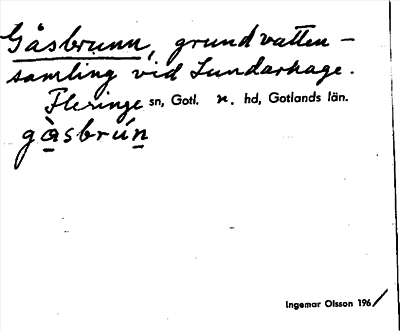 Gåsbrunn, grundvatten-
samling vid Sundarhage.
Fleringe sn, Gotl. n. hd, Gotlands län.
gàsbrún
Ingemar Olsson 196/